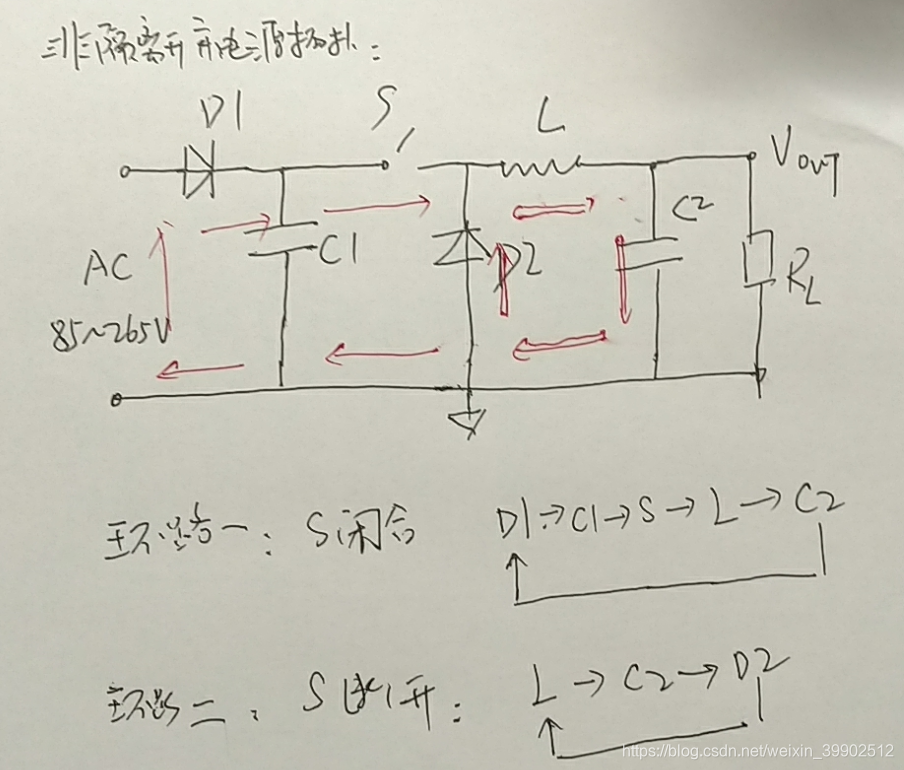 非隔离开关电源拓扑:
D1 S L
VOUT
C2
C1 D2
AC
RL
85~265V
环路一: S闭合 D1→C1→S→L→C2
环路二: S断开: L→C2→D2
https://blog.csdn.net/weixin_39902512